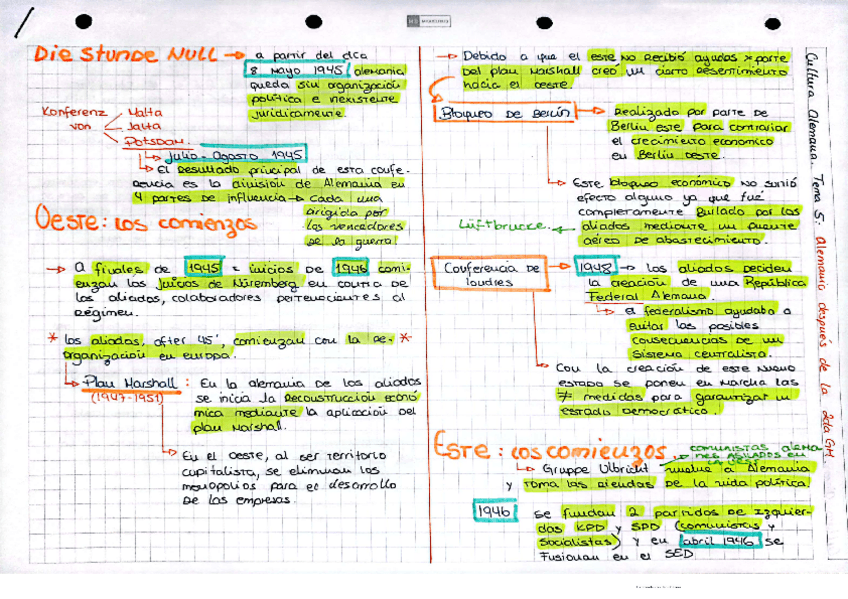 Die Stunde NULL → a partir del dca
8 mayo 1945 alemania
queda sin organización
política e inexistente
jurídicamente.
Konferenz von
Malta
Jalta
Potsdam.
Julio - Agosto 1945
El resultado principal de esta confe-
rencia es la división de Alemania en
4 partes de influencia → cada una
dirigida por
los vencedores
de la guerra
Oeste: los comienzos
→ a finales de 1945 e inicios de 1946 comi-
enzan los Juicios de Nüremberg en contra de
los aliados, colaboradores pertenecientes al
Régimen.
* los aliados, after 45', comienzan con la re- *
organización en Europa.
Plan Marshall : En la alemania de los aliados
(1947-1951)
se inicia la reconstrucción econó
mica mediante la aplicación del
plan Marshall.
En el Oeste, al ser territorio
capitalista, se eliminan los
monopolios para el desarrollo
de las empresas.
→ Debido a que el este no recibió ayudas x parte
del plan Marshall creó un cierto resentimiento
hacia el oeste.
Bloqueo de Berlín
Realizado por parte de
Berlin este para contrariar
el crecimiento economico
en Berlin oeste.
Este bloqueo económico no surtió
efecto alguno ya que fué
completamente burlado por los
Lüftbrücke.
aliados mediante un puente
aéreo de abastecimiento.
Conferencia de
Londres
1948 → los aliados deciden
la creación de una República
Federal Alemana.
el federalismo ayudaba a
evitar las posibles
consecuencias de un
sistema centralista.
Con la creación de este nuevo
estado se ponen en marcha las
≠ medidas para garantizar un
estado democrático.
Este: los comienzos.
comunistas alema
nes asilados en
la URSS
Gruppe Ulbricht vuelve a Alemania
y toma las riendas de la vida política.
1946
se fundan 2 partidos de izquier-
das KPD y SPD (comunistas y
socialistas) y en abril 1946 se
fusionan en el SED
Cultura Alemana. Tema 5. Alemania después de la 2da GM.